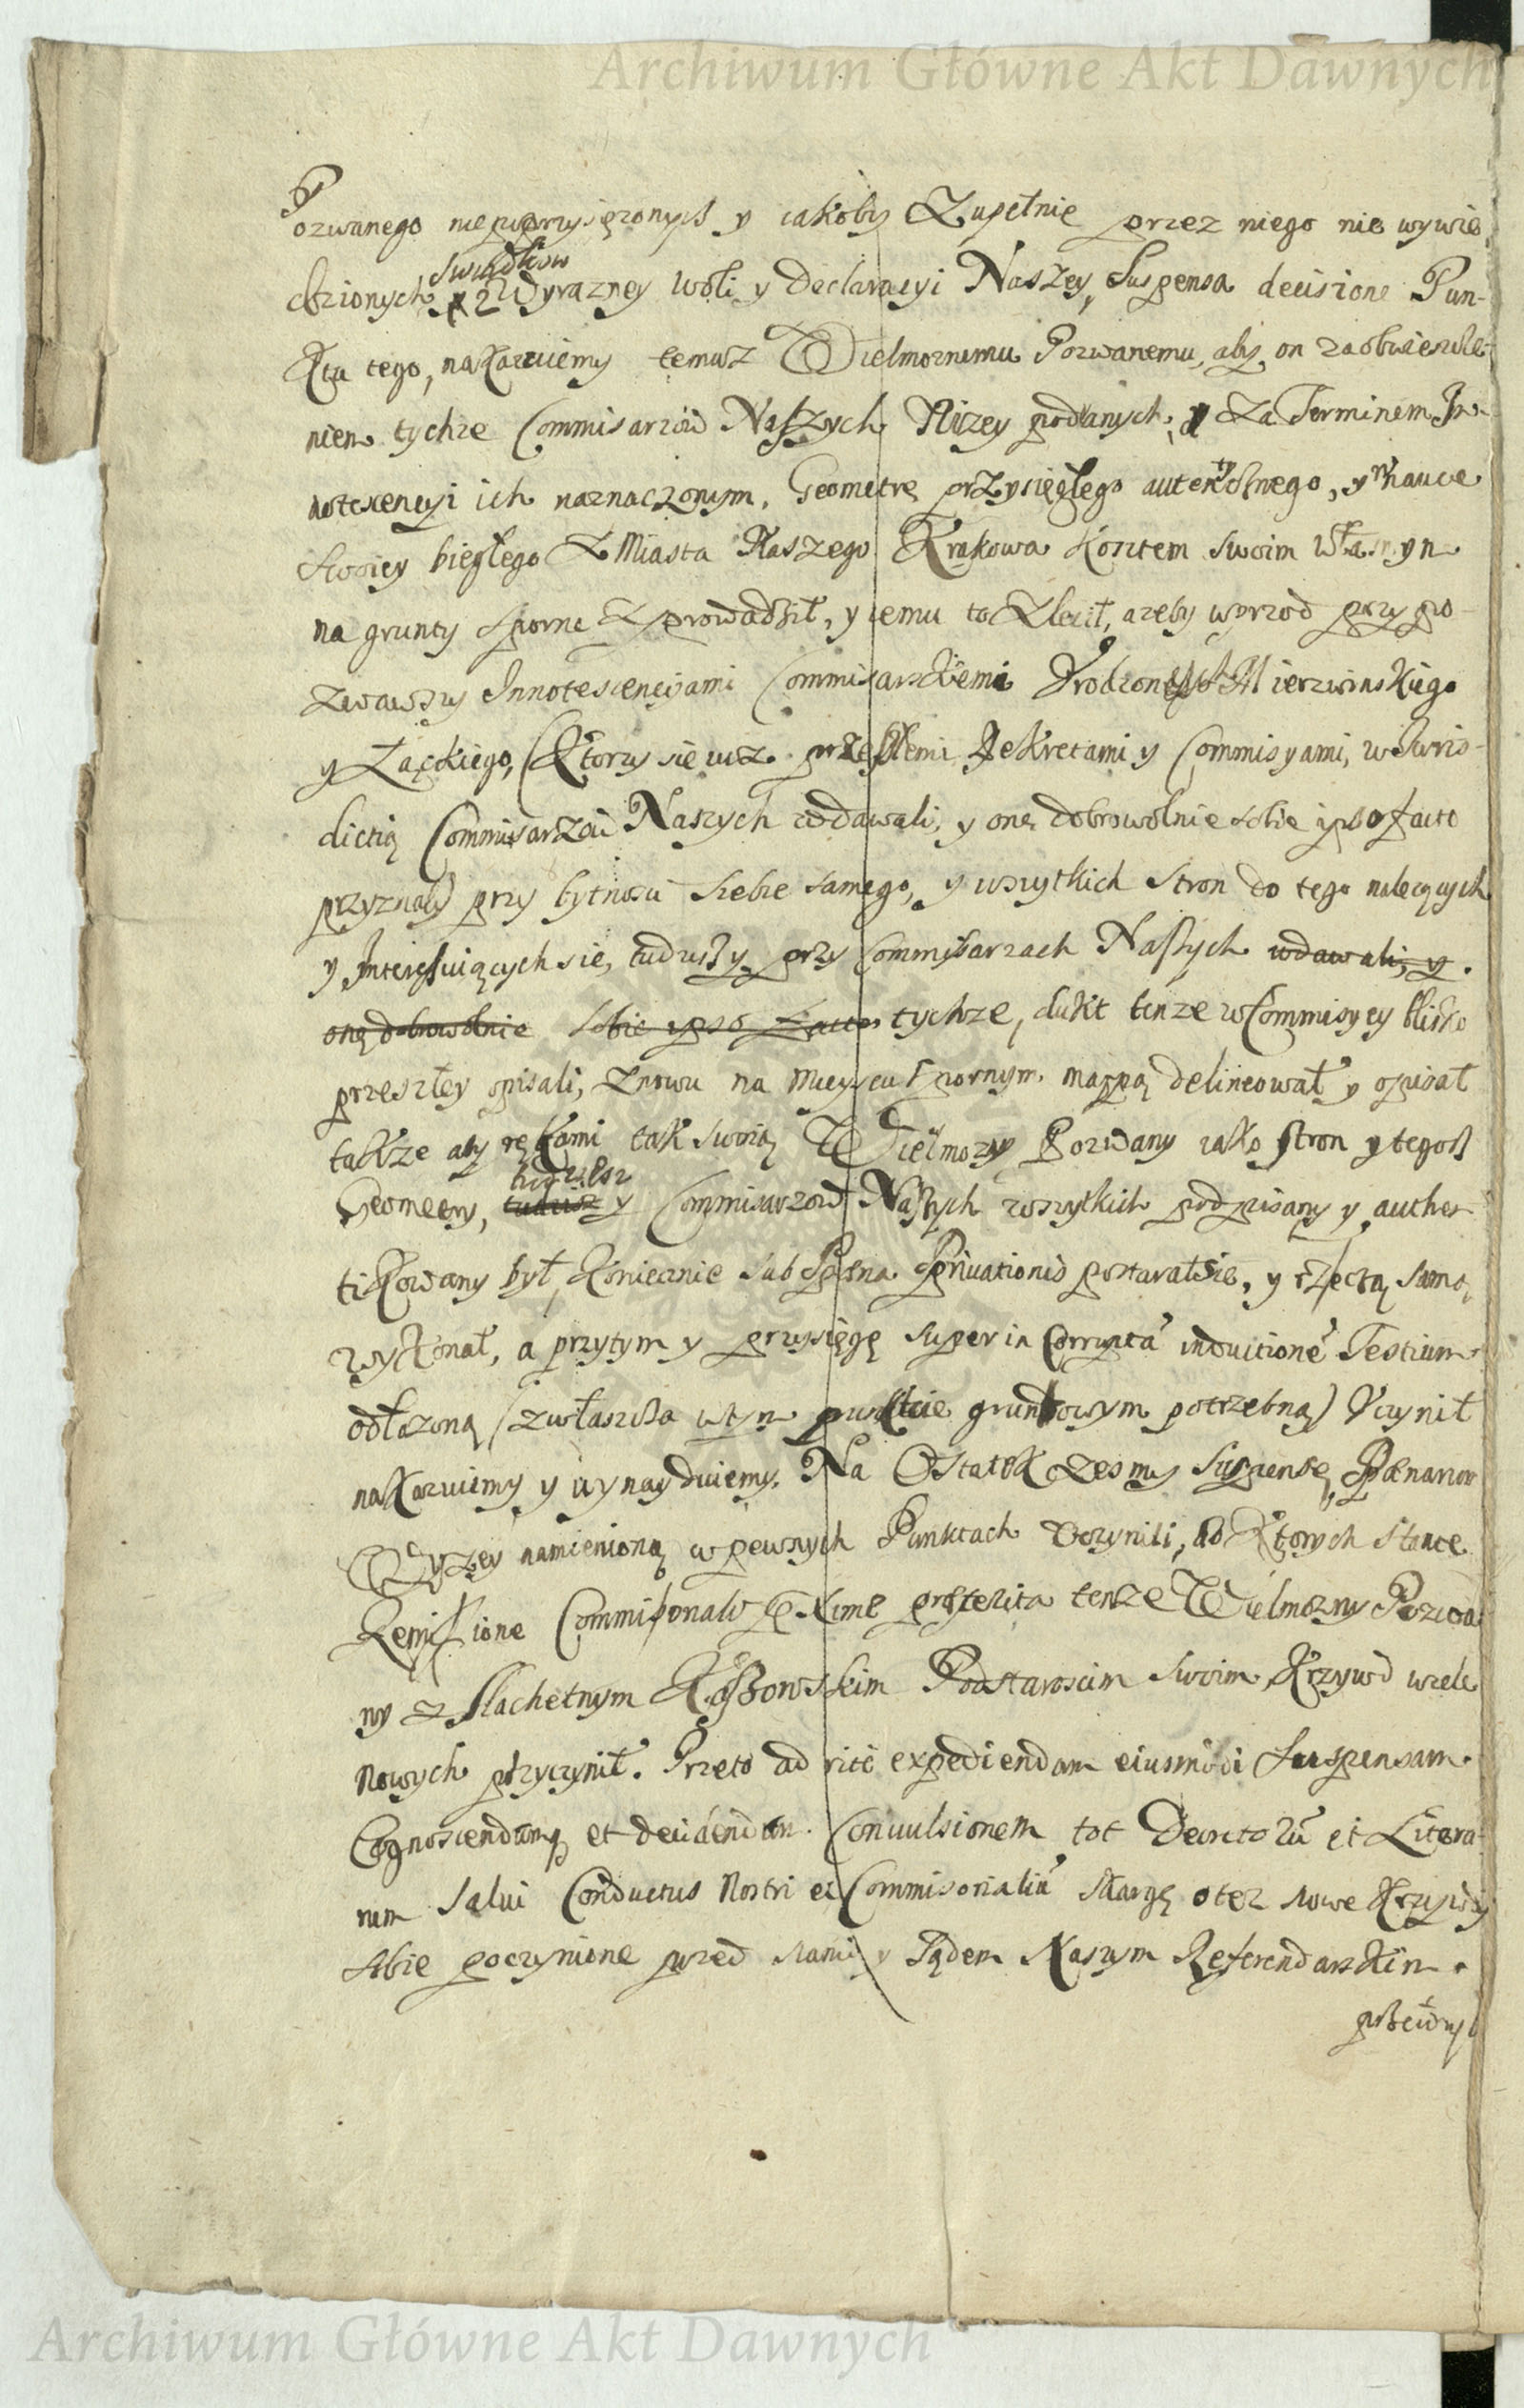 Archiwum Główne Akt Dawnych
Pozwanego niepoprzysięzonych y iakoby Zupełnie przez niego nie wywie,
dzionych Swiadkow z Wyrazney woli y Declaracyi Naszey, Suspensa decisione Pun-
ktu tego, nakazuiemy temusz Wielmoznemu Pozwanemu, aby on zaobwieszcze-
niem tychze Commisarzow Naszych Nizey podanych, y Za Terminem In-
notescencyi ich naznaczonym, Geometrę przysięgłego autentycznego, y w nauce
Swoiey biegłego Z Miasta Naszego Krakowa kosztem swoim własnym
na grunty sporne Zprowadził, y iemu to Zlecił, azeby wprzod przypo-
zwawszy Innotescencyami Commisarskiemi Urodzonych Mierzwinskiego
y Łąckiego, (Ktorzy sie iusz przeszłemi Dekretami y Commisyami, w Juris-
dictią Commisarzow Naszych wdawali, y onę dobrowolnie sobie ipso facto
przyznali) przy bytnosci siebie samego, y wszytkich Stron do tego nalezących
y Interessuiących sie, tudziesz y przy Commissarzach Naszych wdawali, y
onę dobrowolnie sobie ipso facto tychze, dukt tenze w Commisyey blisko
przeszłey opisali, znowu na mieyscu spornym mappą delineował y opisał
takze aby rękami tak swoią Wielmozny Pozwany iako stron y tegosz
Geometry, tudziesz y Commisarzow Naszych wszytkich podpisany y authen
tikowany był, koniecznie sub Pæna Privationis postarał sie, y rzeczą samą
wykonał, a przytym y przysięgę super in Corrupta inductione Testium
odłozoną (zwłaszcza wtym punkcie gruntowym potrzebną) Uczynił
nakazuiemy y wynayduiemy. Na Ostatek zesmy Suspensę Pænarum
Wyzey namienioną w pewnych Punktach Uczynili, ad Ktorych stante
Remissione Commissionali proxime præterita tenze Wielmozny Pozwa
ny z Slachetnym Podstaroscim swoim Krzywd wiele
Nowych przyczynił. Przeto ad rite expediendam eiusmodi Suspensam
Cognoscendamq et decidendam Convulsionem tot Decretorum et Litera
rum Salvi Conductus Nostri et Commisorialium skargę o tez nowe Krzywdy
sobie poczynione przed Nami y Sądem Naszym Referendarskim
Archiwum Główne Akt Dawnych